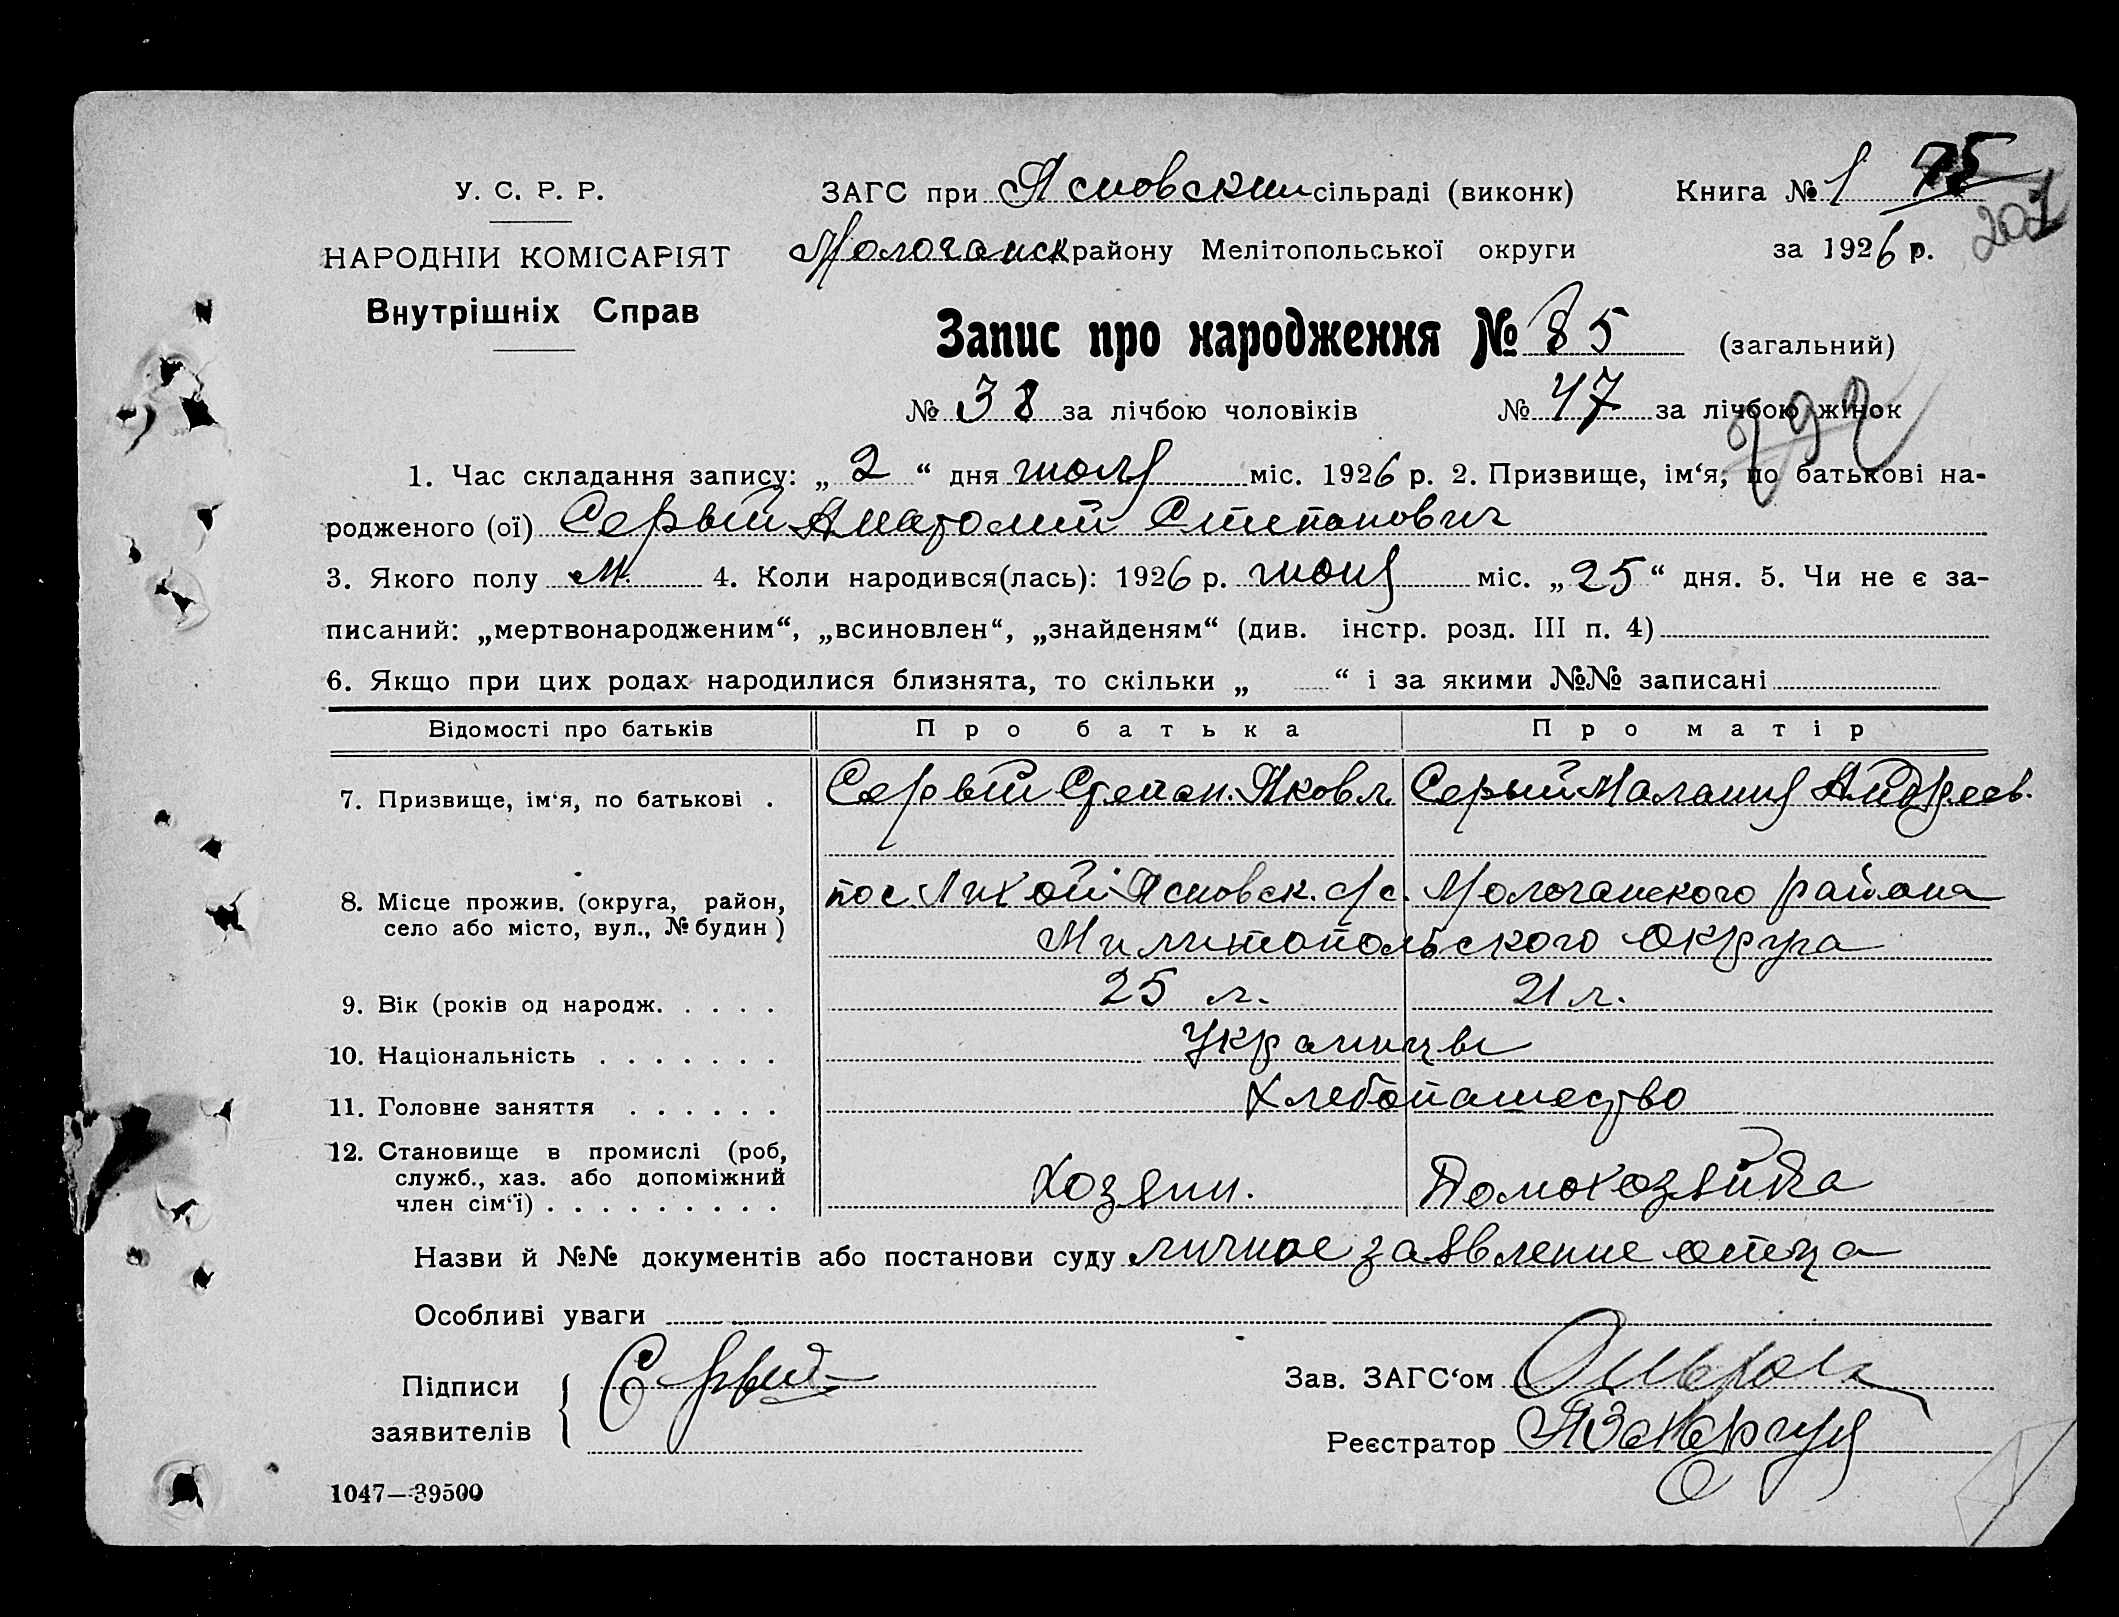 У. С. Р. Р.
НАРОДНІЙ КОМІСАРІЯТ
Внутрішніх Справ
ЗАГС при Ясновским сільраді (виконк)
Молочанск району Мелітопольської округи
Книга № 1 75
207
за 1926 р.
Запис про народження № 85 (загальний)
№ 38 за лічбою чоловіків № 47 за лічбою жінок
1. Час складання запису: „ 2 “ дня июля міс. 1926 р. 2. Призвище, ім‘я, по батькові на-
родженого (ої) Серый Анатолий Степанович
3. Якого полу м. 4. Коли народився(лась): 1926 р. июня міс. „ 25 “ дня. 5. Чи не є за-
писаний: „мертвонародженим“, „всиновлен“, „знайденям“ (див. інстр. розд. III п. 4)
6. Якщо при цих родах народилися близнята, то скільки „ “ і за якими №№ записані
Відомості про батьків Про батька Про матір
7. Призвище, ім‘я, по батькові . Серый Степан. Яковл. Серый Малания Андреев.
8. Місце прожив. (округа, район, село або місто, вул., № будин ) пос Лихой Ясновск. с/с. Молочанского района
Милитопольского округа
9. Вік (років од народж. . . . . 25 л. 21 л.
10. Національність . . . . . . . Украинцы
11. Головне заняття . . . . . . Хлебопашество
12. Становище в промислі (роб, служб., хаз. або допоміжний член сім‘ї) . . . . . . . . . Хозяин. Домохозяйка
Назви й №№ документів або постанови суду личное заявление отца
Особливі уваги
Підписи заявителів Серый
Зав. ЗАГС‘ом
Реєстратор
1047—39500